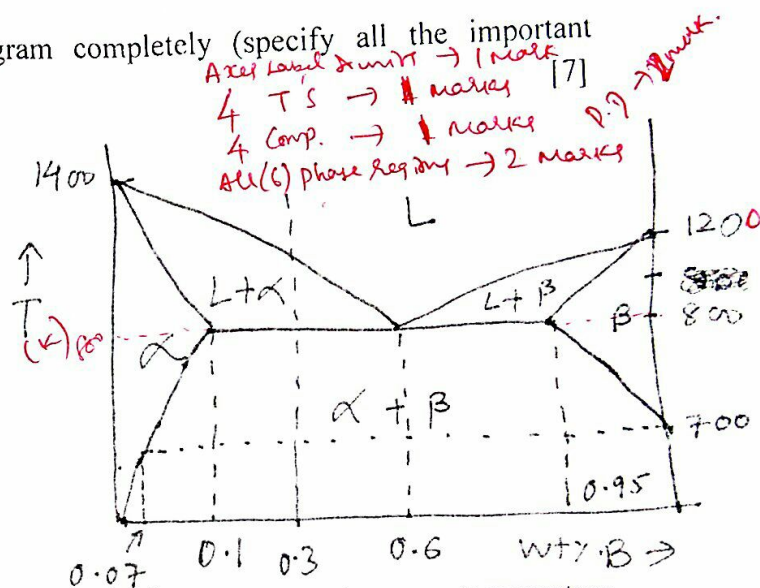 gram completely (specify all the important
Axes Label & unit → 1 Mark
[7]
4 T's → 1 Marks
4 Comp. → 1 Marks
P.D → 2 mark.
All (6) phase regions → 2 Marks
1400
L
1200
↑
T
(K)
800
L+α
L+β
β
800
α
α + β
700
0.95
0.07
0.1
0.3
0.6
wt% B →